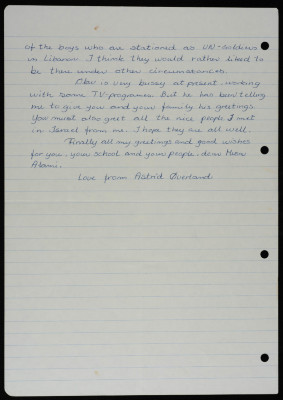 of the boys who are stationed as UN-soldiers
in Libanon. I think they would rather liked to
be there under other circumstances.
is very bussy at present, working
with some TV-programme. But he has been telling
me to give you and your family his greetings.
You must also greet all the nice people I met
in Israel from me. I hope they are all well.
Finally all my greetings and good wishes
for you, your school and your people, dear
Alami.
Love from Astrid Øverland.